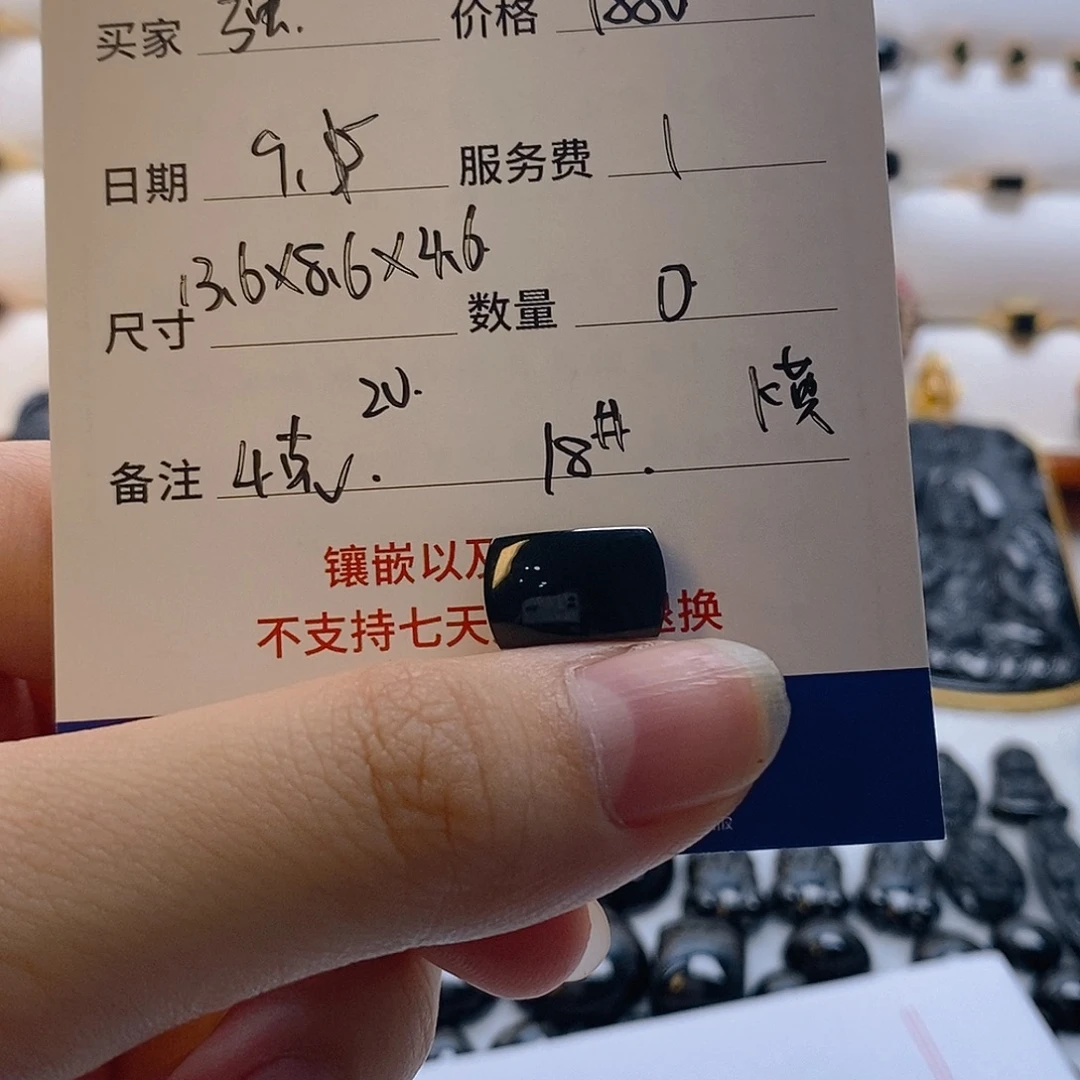 买家 强. 价格 1880
日期 9.5 服务费 1
尺寸 13.6×8.6×4.6 数量 0
20.
备注 4克. 18#.
镶嵌以及
不支持七天 退换